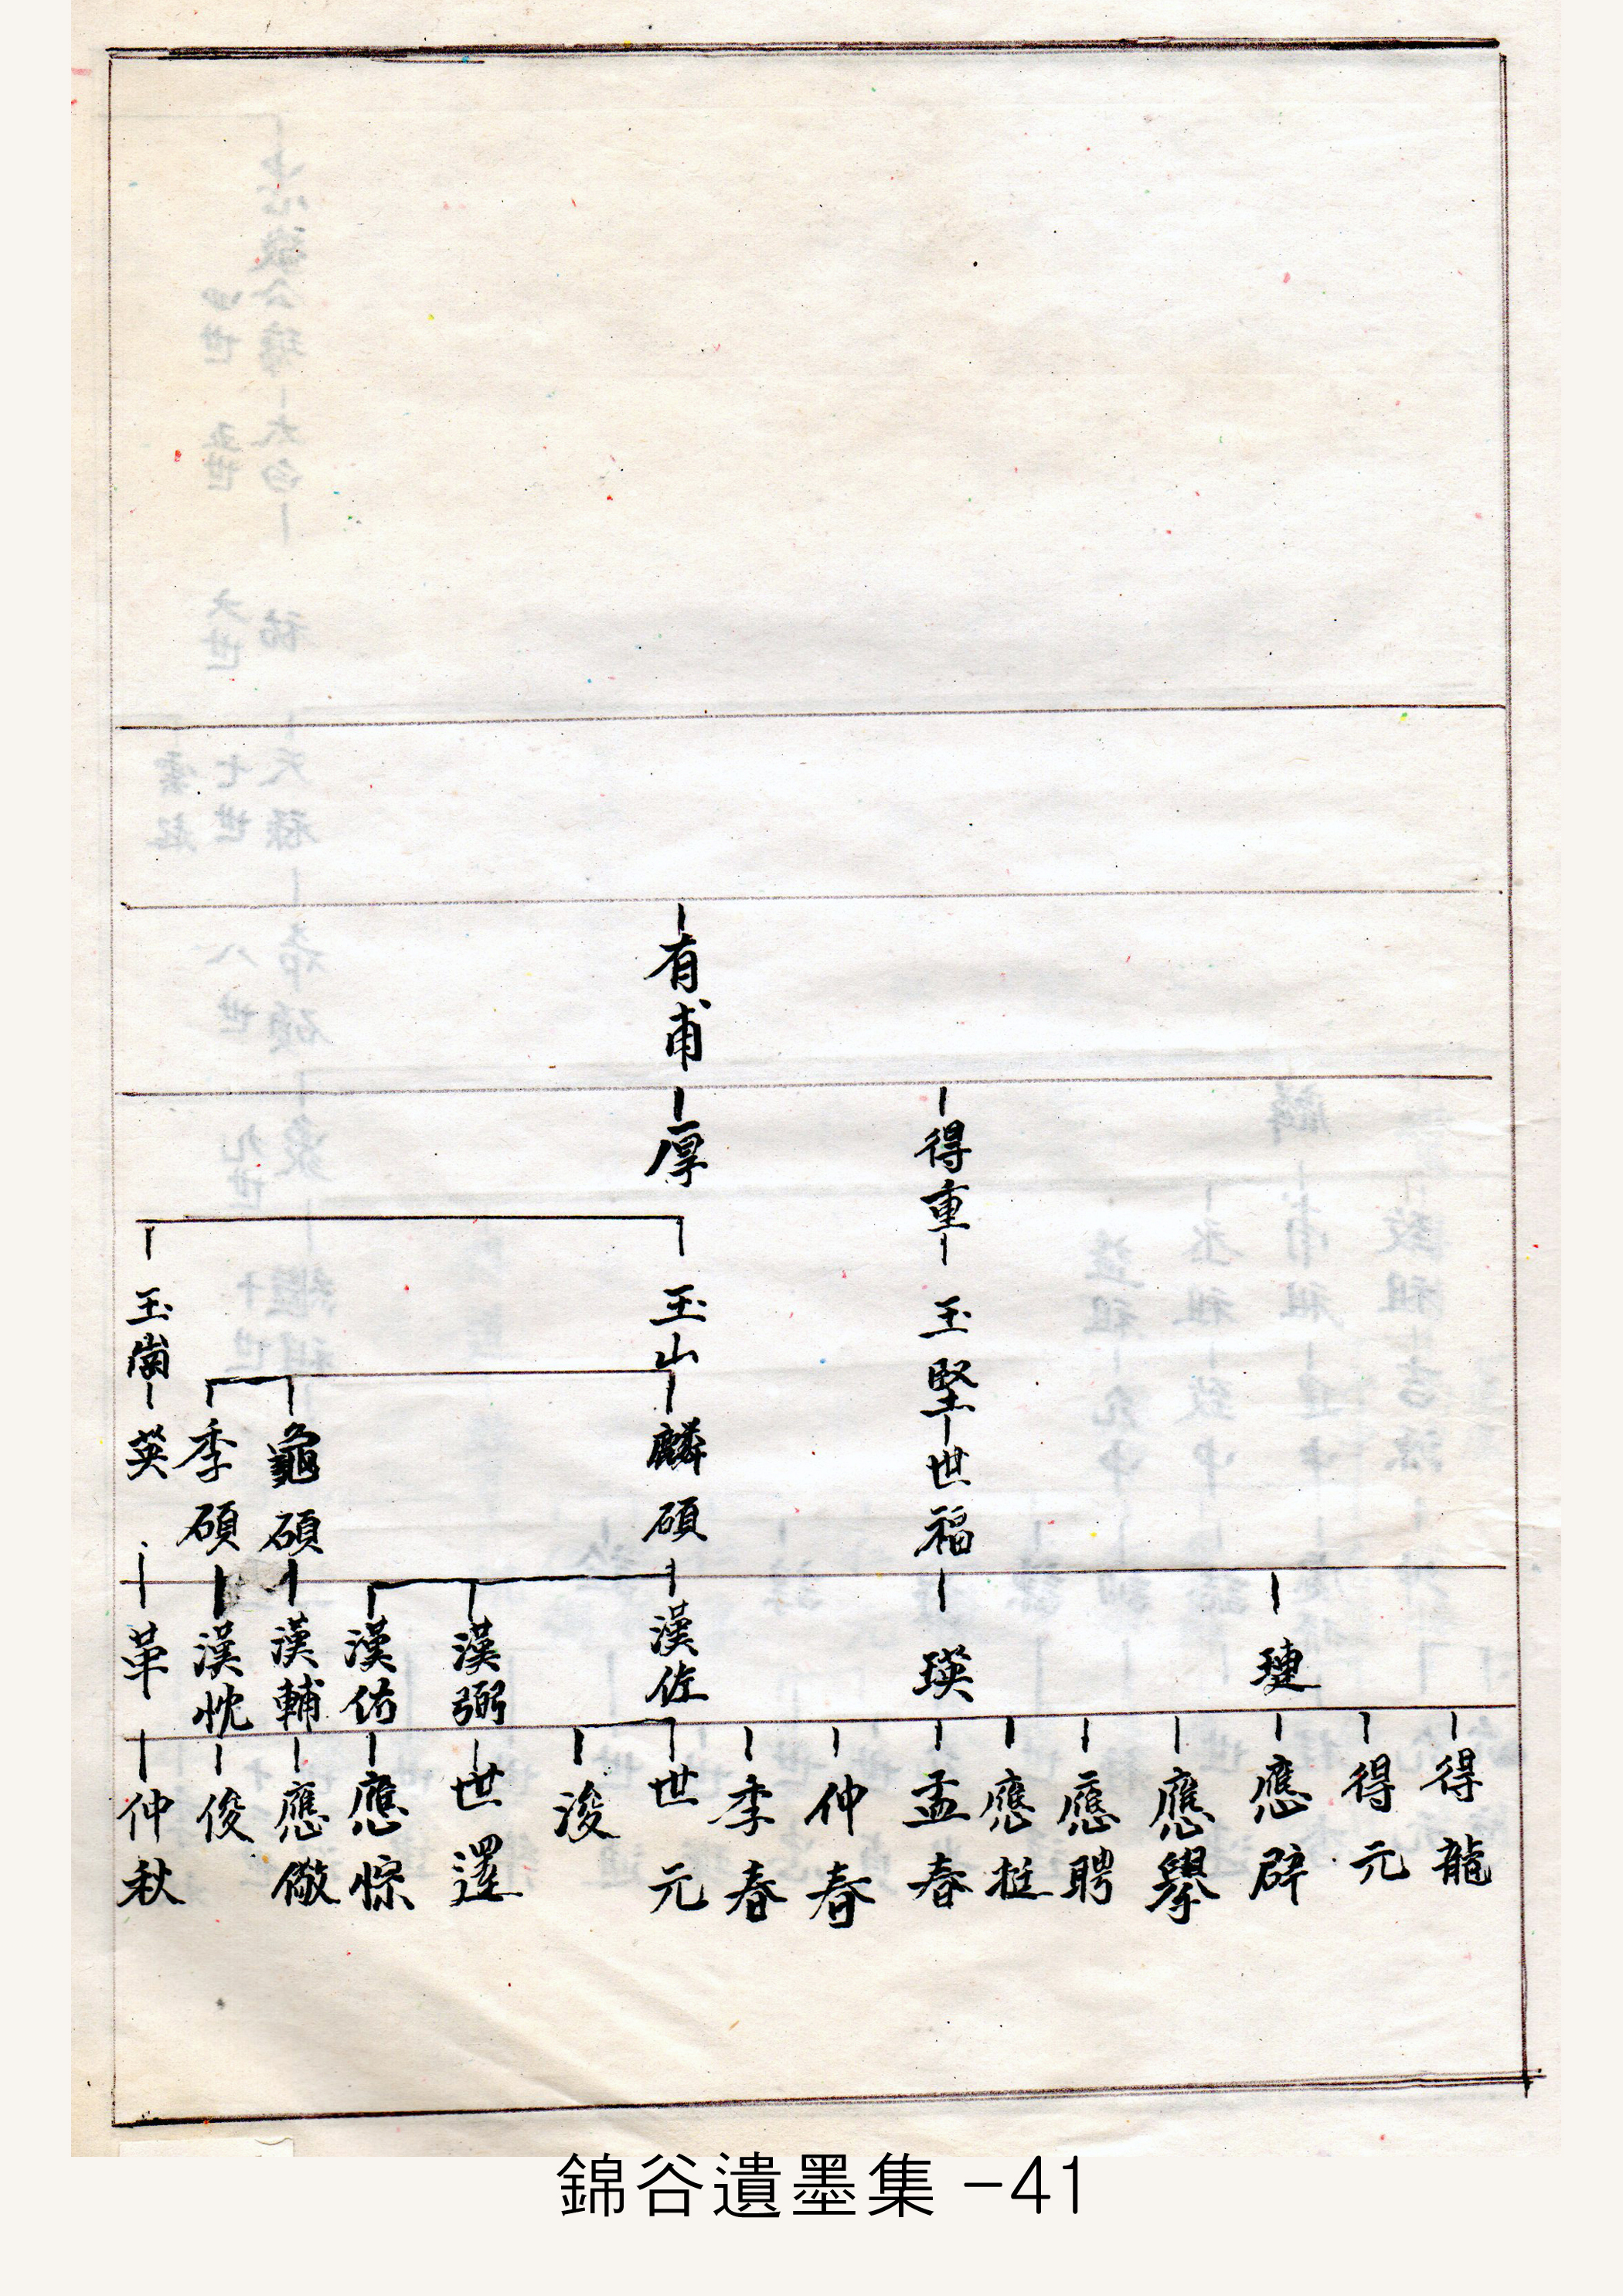 得龍
得元
璉
應辟
應擧
應聘
應挺
得重
玉堅
世福
瑛
孟春
仲春
季春
有甫
厚
玉山
麟碩
漢佐
世元
浚
漢弼
世
漢佑
應悰
龜碩
漢輔
應儆
季碩
漢忱
俊
玉崗
英
革
仲秋
錦谷遺墨集 -41